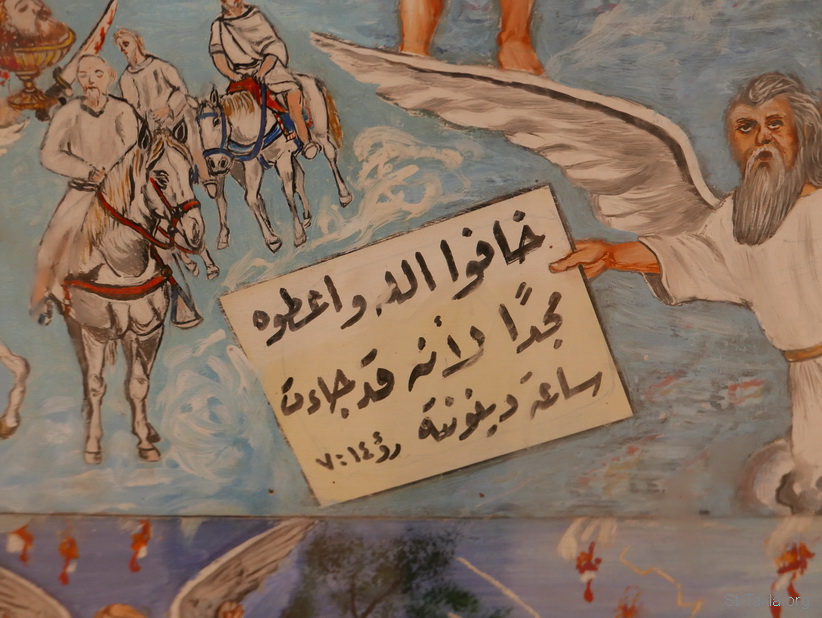 خافوا الله واعطوه
مجدًا لأنه قد جاءت
ساعة دينونتة رؤ١٤: ٧
St-Takla.org